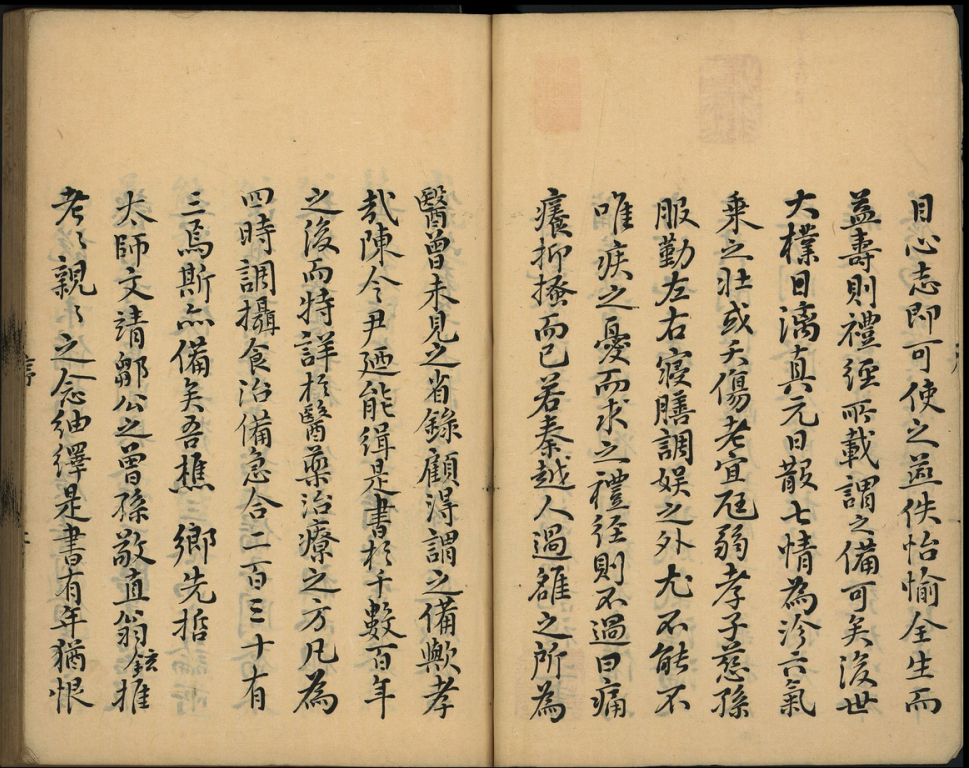 目心志即可使之益佚怡愉全生而
益壽則禮經所載謂之備可矣後世
大樸日漓真元日散七情為沴六氣
乗之壮或夭傷老宜尫弱孝子慈孫
服勤左右寝膳調娱之外尤不能不
唯疾之憂而求之禮經則不過曰痛
癢抑搔而已若秦越人過雒之所為
醫曾未見之省錄顧得謂之備歟孝
哉陳令尹廼能緝是書於千數百年
之後而特詳於醫藥治療之方凡為
四時調攝食治備急合二百三十有
三焉斯亦備矣吾樵 鄉先哲
太師文靖鄒公之曾孫敬直翁鉉推
老〻親〻之念紬繹是書有年猶恨
序